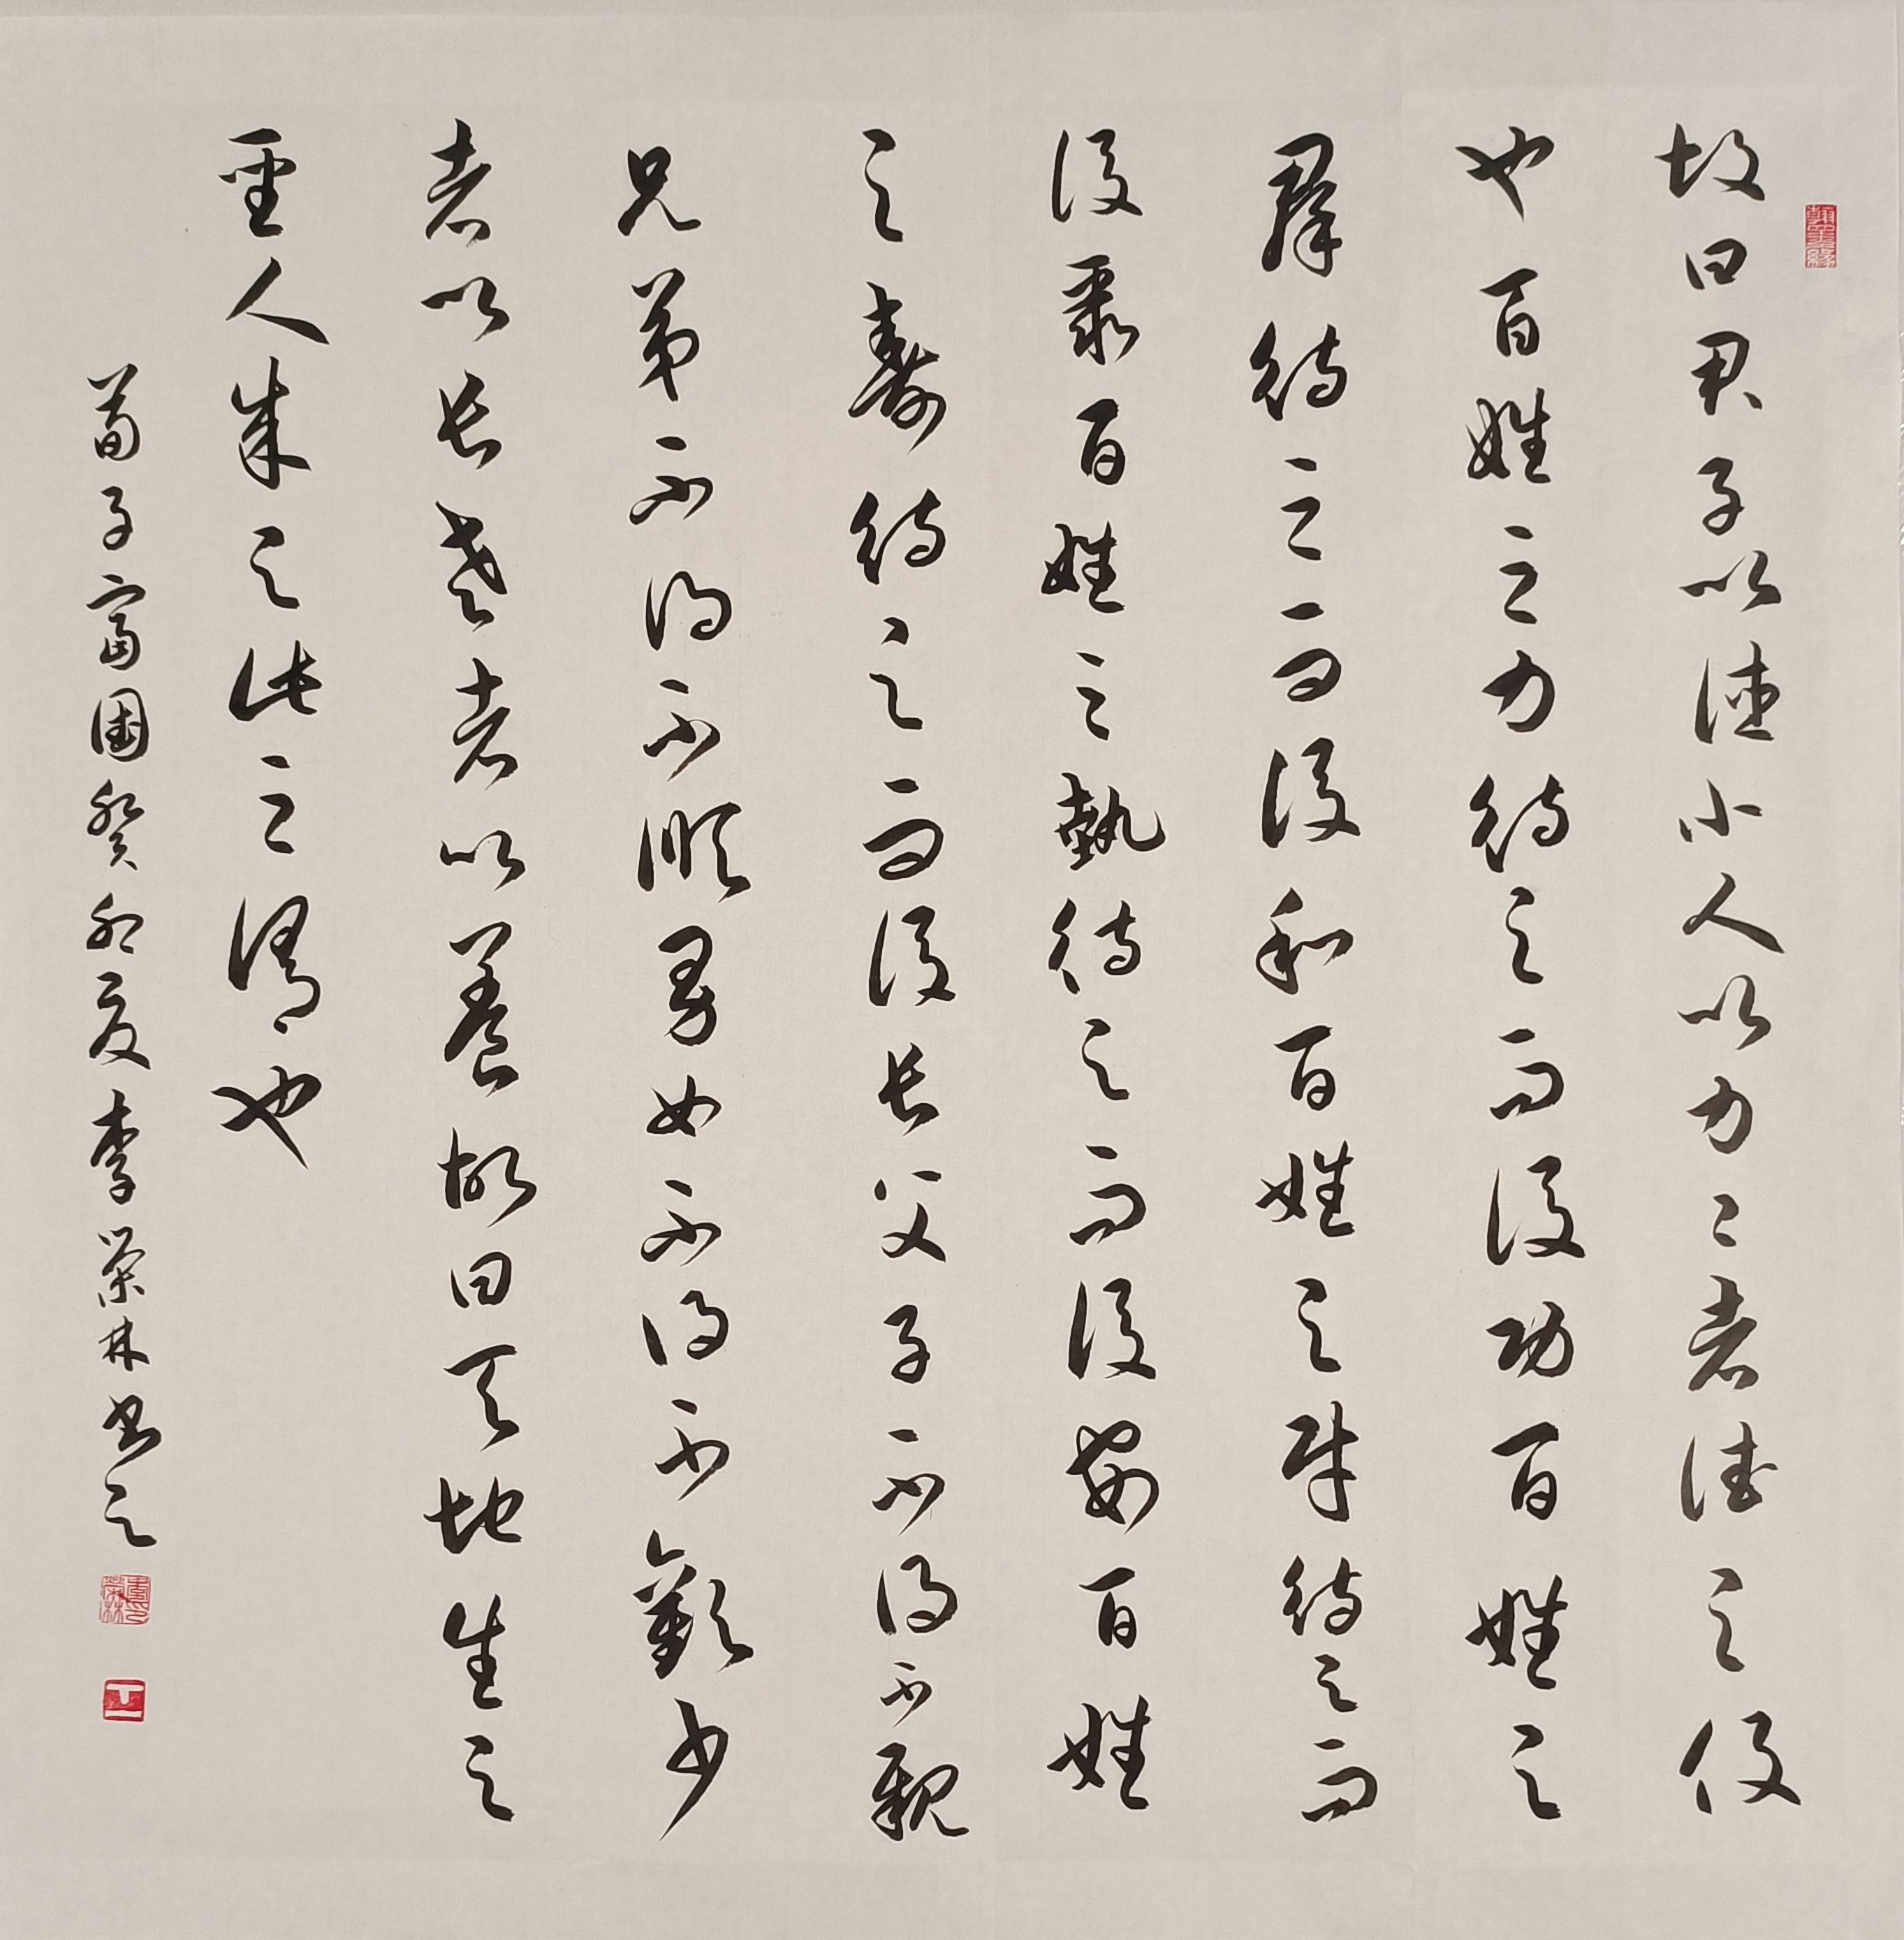 翰墨緣
故曰君子以德小人以力〻者德之役
也百姓之力待之而後功百姓之
羣待之而後和百姓之財待之而
後聚百姓之埶待之而後安百姓
之壽待之而後長父子不得不親
兄弟不得不順男女不得不歡少
者以長老者以養故曰天地生之
聖人成之此之謂也
荀子富國癸卯夏李榮林書之